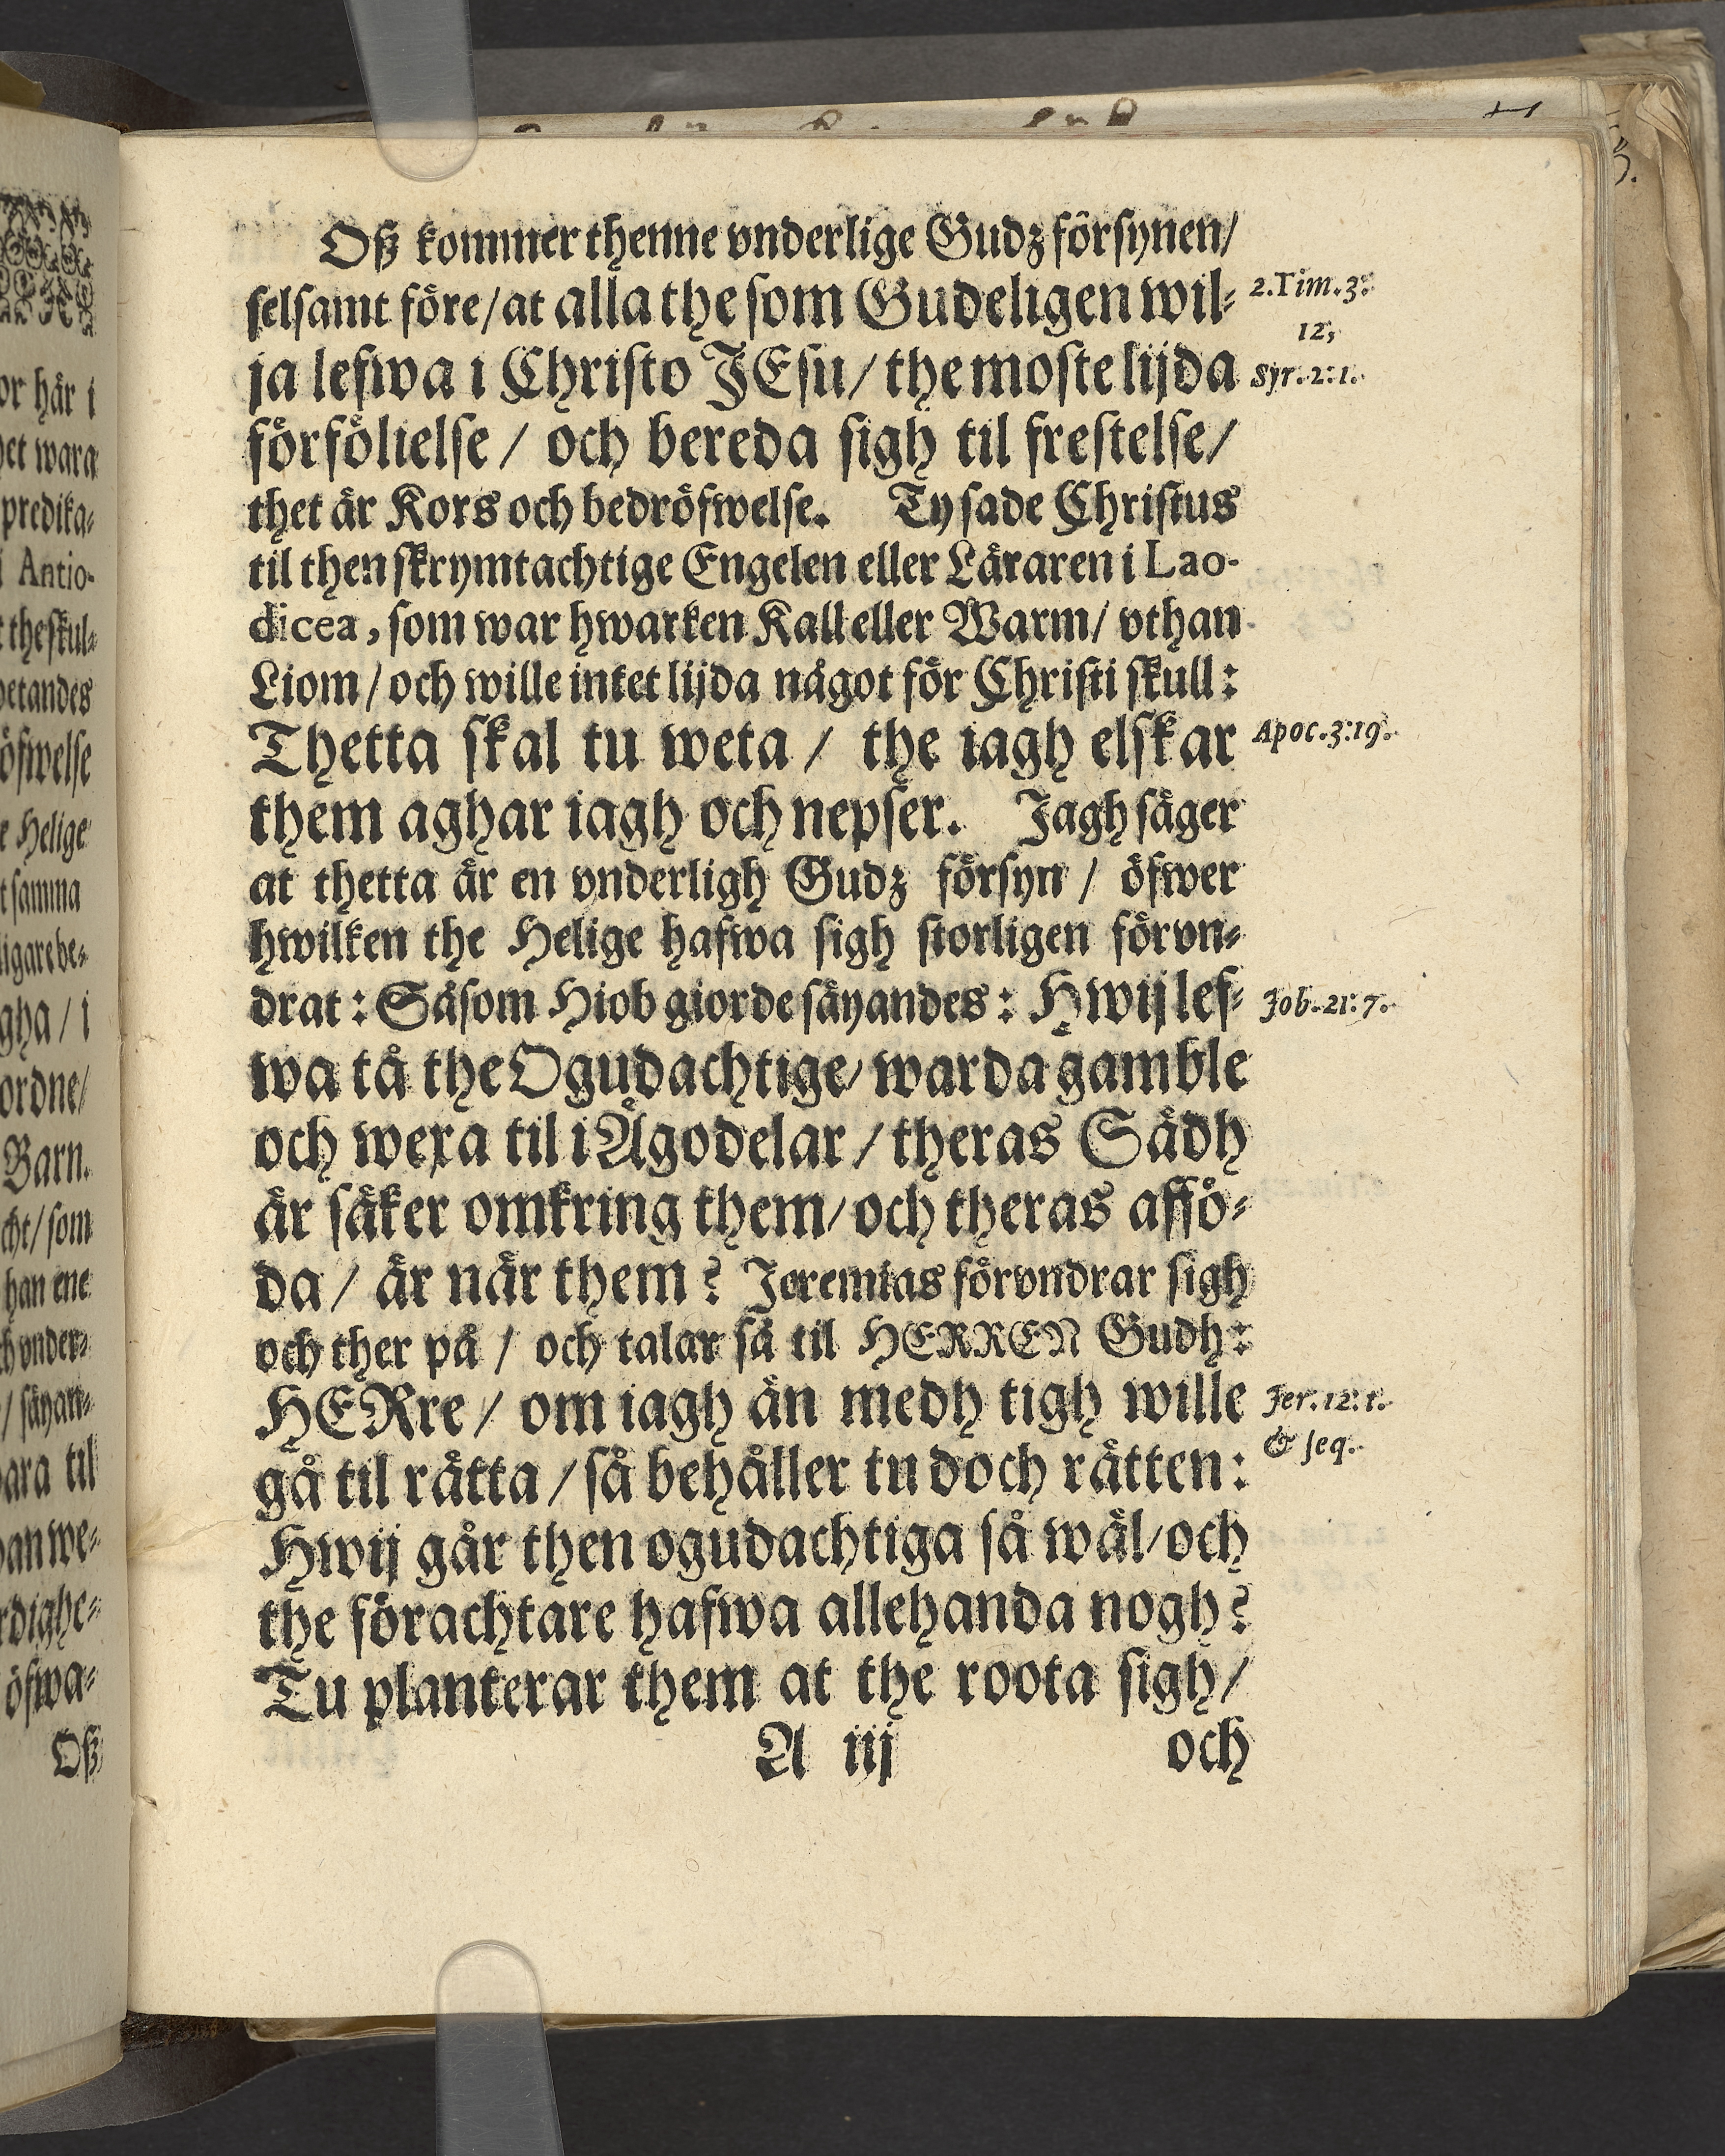 Oß kommer thenne vnderlige Gudz försynen/
selsamt före/at alla the som Gudeligen wil-
ja lefwa i Christo JEsu/ the moste lijda
förfölielse / och bereda sigh til frestelse/
thet är Kors och bedröfwelse. Ty sade Christus
til then skrymtachtige Engelen eller Läraren i Lao-
dicea, som war hwarken Kall eller Warm/ vthan
Liom / och wille intet lijda något för Christi skull:
Thetta skal tu weta / the iagh elskar
them aghar iagh och nepser. Jagh säger
at thetta är en vnderligh Gudz försyn / öfwer
hwilken the Helige hafwa sigh storligen förvn-
drat: Såsom Hiob giorde säyandes: Hwij lef-
wa tå the Ogudachtige/ warda gamble
och wexa til i Ågodelar / theras Sädh
är säker omkring them/ och theras affö-
da / är när them? Jeremias förvndrar sigh
och ther på / och talar så til HERREN Gudh:
HERre / om iagh än medh tigh wille
gå til rätta / så behåller tu doch rätten:
Hwij går then ogudachtiga så wäl/ och
the förachtare hafwa allehanda nogh?
Tu planterar them at the roota sigh/
A iij och
2.Tim.3:
12,
Syr.2:1.
Apoc.3:19.
Job.21:7.
Jer.12:1.
& seq.
or här i
het wara
predika-
Antio-
the skul-
betandes
öfwelse
Helige
samma
ligare be-
gha / i
ordne/
Barn.
cht/ som
han ene
vnder-
/ säyan-
til
an we-
rdighe-
öfwa-
Oß